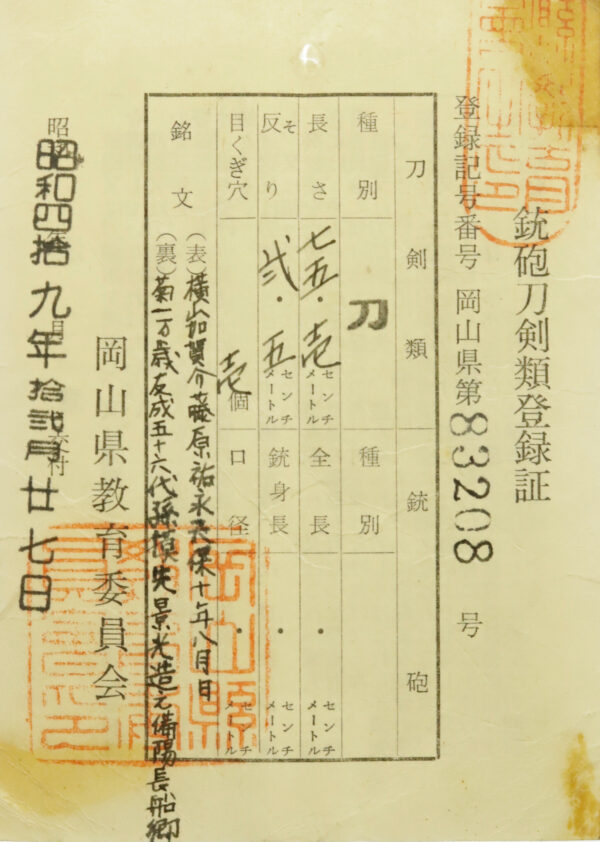 銃砲刀剣類登録証
登録記号番号 岡山県第 83208 号
刀剣類 銃砲
種別 刀 種別
長さ 七五・壱 センチメートル 全長 ・ センチメートル
反り そ 弐・五 センチメートル 銃身長 ・ センチメートル
目くぎ穴 壱 個 口径 ・ センチメートル
銘文 (表)横山加賀介藤原祐永天保十年八月日
(裏)菊一万歳友成五十六代孫模先景光造之備陽長船郷
岡山県教育委員会
昭和四拾九年拾弐月廿七日